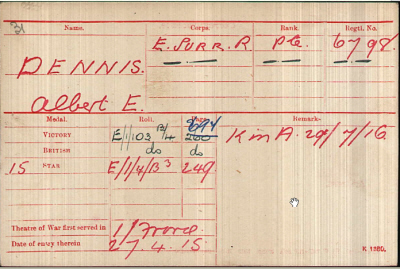 Name. Corps. Rank. Regtl. No.
E. Surr. R Pte. 6798.
DENNIS.
Albert E.
Medal. Roll. Page. Remarks-
VICTORY E/1/103 B/4 K in A. 29/7/16.
BRITISH do do
15 STAR E/1/4/B3 249.
Theatre of War first served in 1/ France.
Date of entry therein 27.4.15
K 1380.